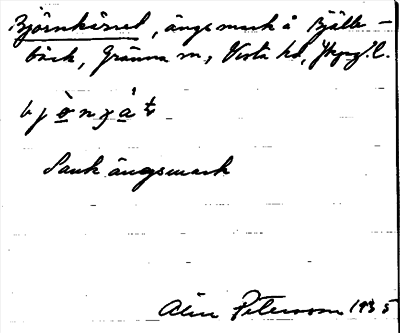 Björnkärret, ängsmark å Bjälle-
bäck, Gränna sn, Vista hd, Jkpgs l.
Sank ängsmark
Petersson 1935